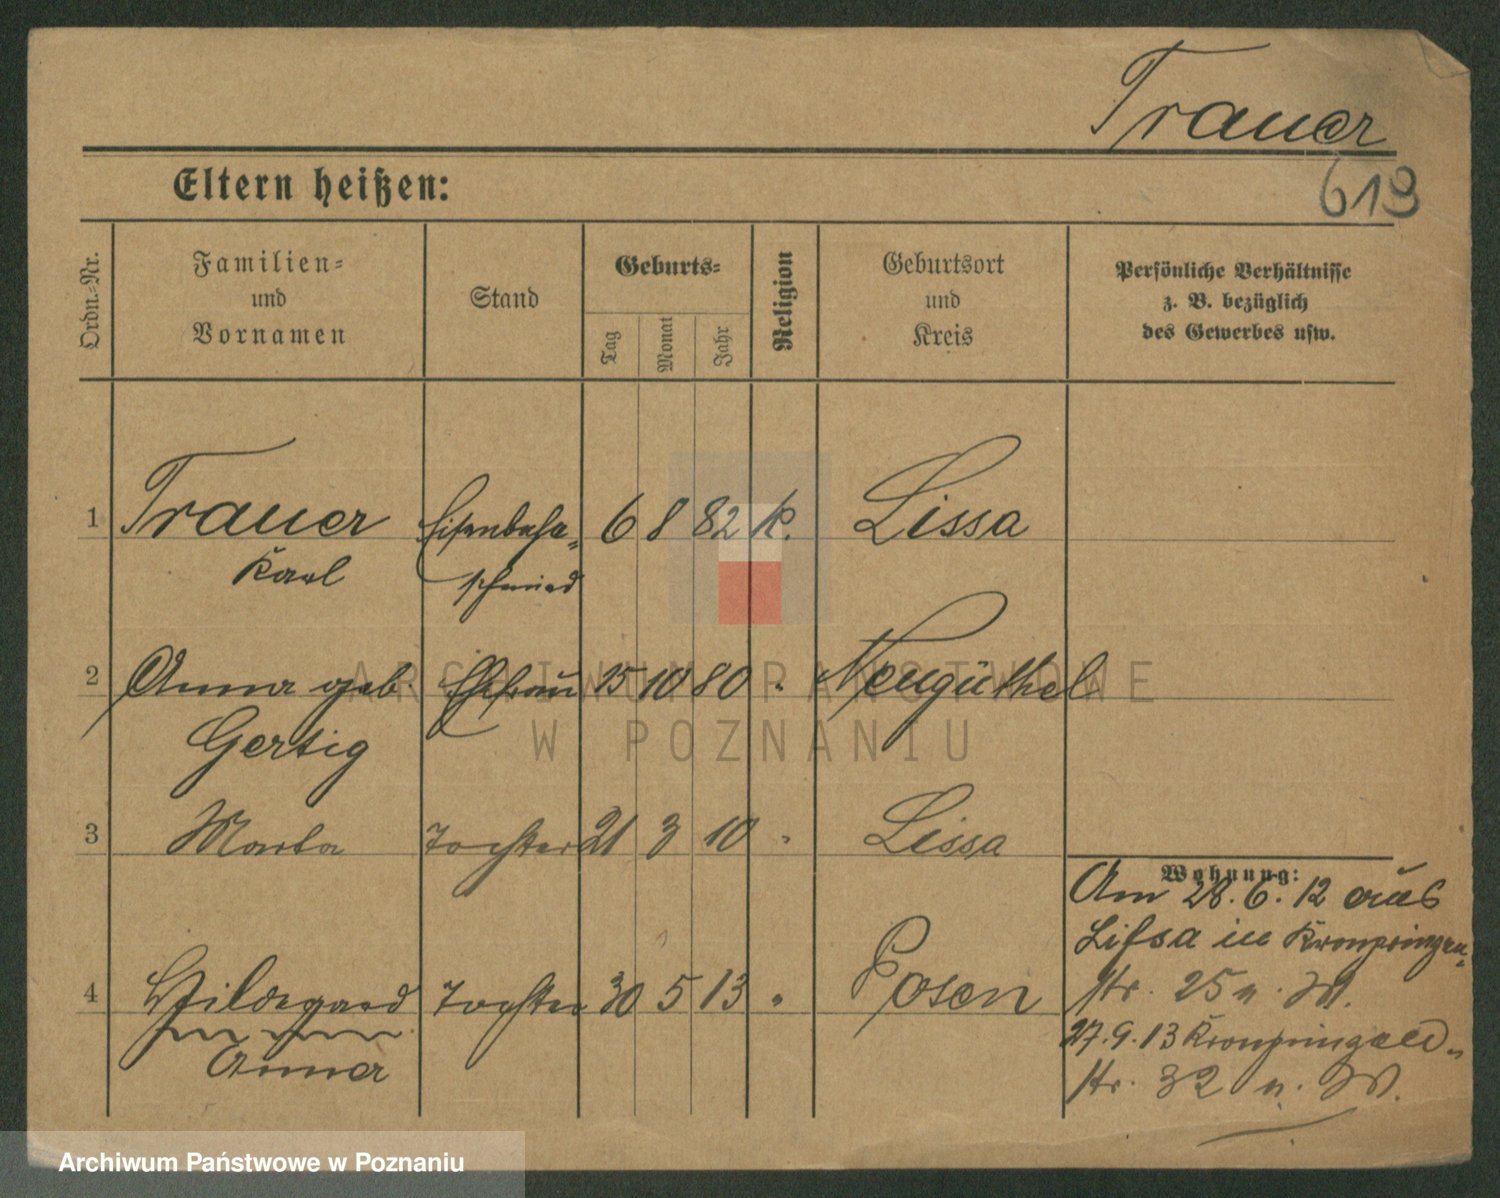 Trauer
Eltern heißen:
613
Ordn.-Nr.
Familien-
und
Vornamen
Stand
Geburts-
Tag
Monat
Jahr
Religion
Geburtsort
und
Kreis
Persönliche Verhältnisse
z. B. bezüglich
des Gewerbes usw.
1 Trauer Eisenbahn- 6 8 82 K. Lissa
Karl schmied
2 Anna geb. Ehefrau 15 10 80 " Neugüthel
Gertig
3 Marta Tochter 21 3 10 " Lissa
Wohnung:
Am 28.6.12 aus
Lissa in Kronprinzen-
4 Hildegard Tochter 30 5 13 " Posen
str. 25 n. W.
Anna
27.9.13 Kronprinzen-
str. 32 n. W.
ARCHIWUM PAŃSTWOWE
W POZNANIU
Archiwum Państwowe w Poznaniu